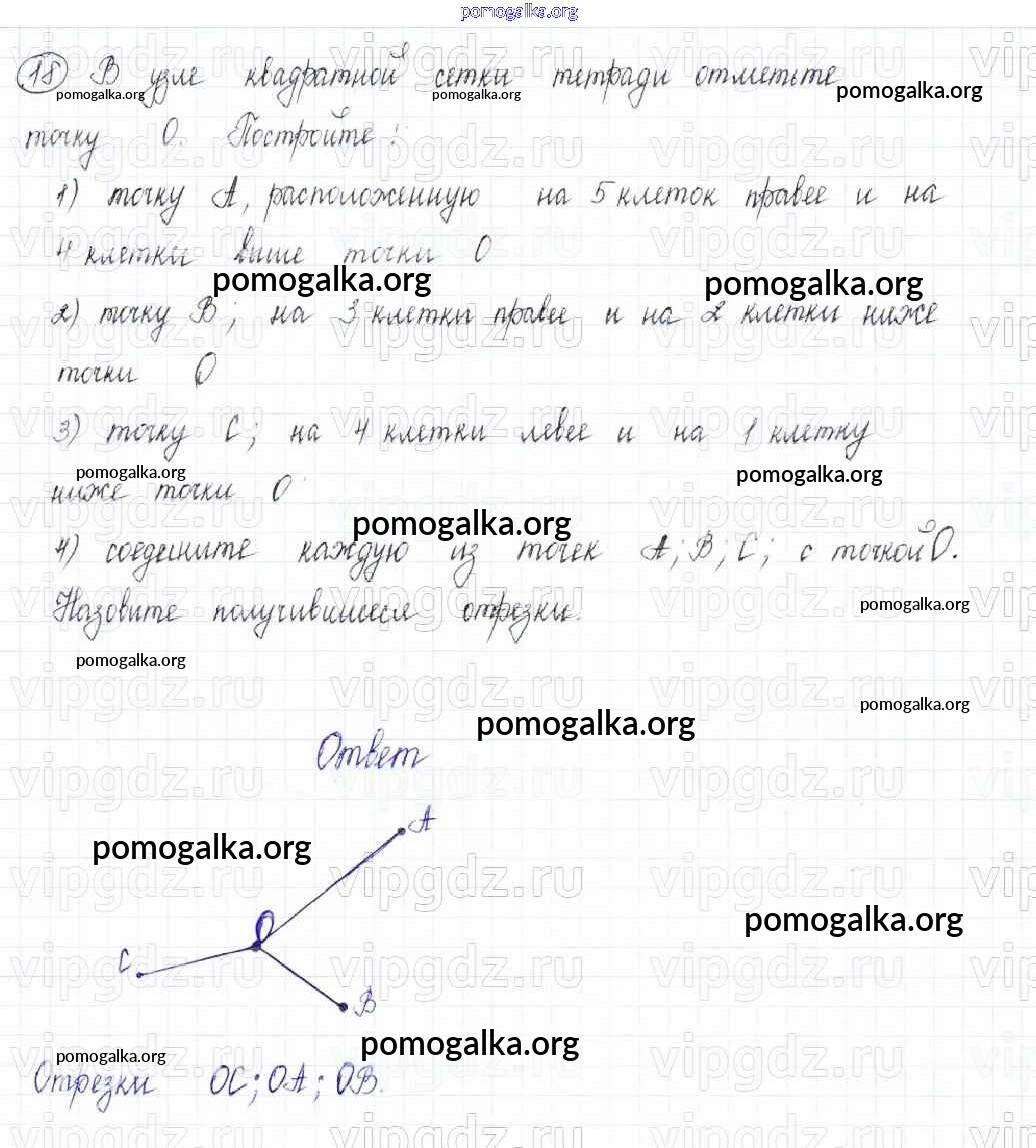 pomogalka.org
18 В узле квадратной сетки тетради отметьте
pomogalka.org pomogalka.org pomogalka.org
точку О. Постройте:
1) точку А, расположенную на 5 клеток правее и на
4 клетки выше точки О
pomogalka.org pomogalka.org
2) точку В; на 3 клетки правее и на 2 клетки ниже
точки О
3) точку С; на 4 клетки левее и на 1 клетку
pomogalka.org pomogalka.org
ниже точки О
pomogalka.org
4) соедините каждую из точек А; В; С; с точкой О.
Назовите получившиеся отрезки.
pomogalka.org
pomogalka.org
pomogalka.org
pomogalka.org
Ответ
А
pomogalka.org
О
pomogalka.org
С
В
pomogalka.org
pomogalka.org
Отрезки ОС; ОА; ОВ.
vipgdz.ru